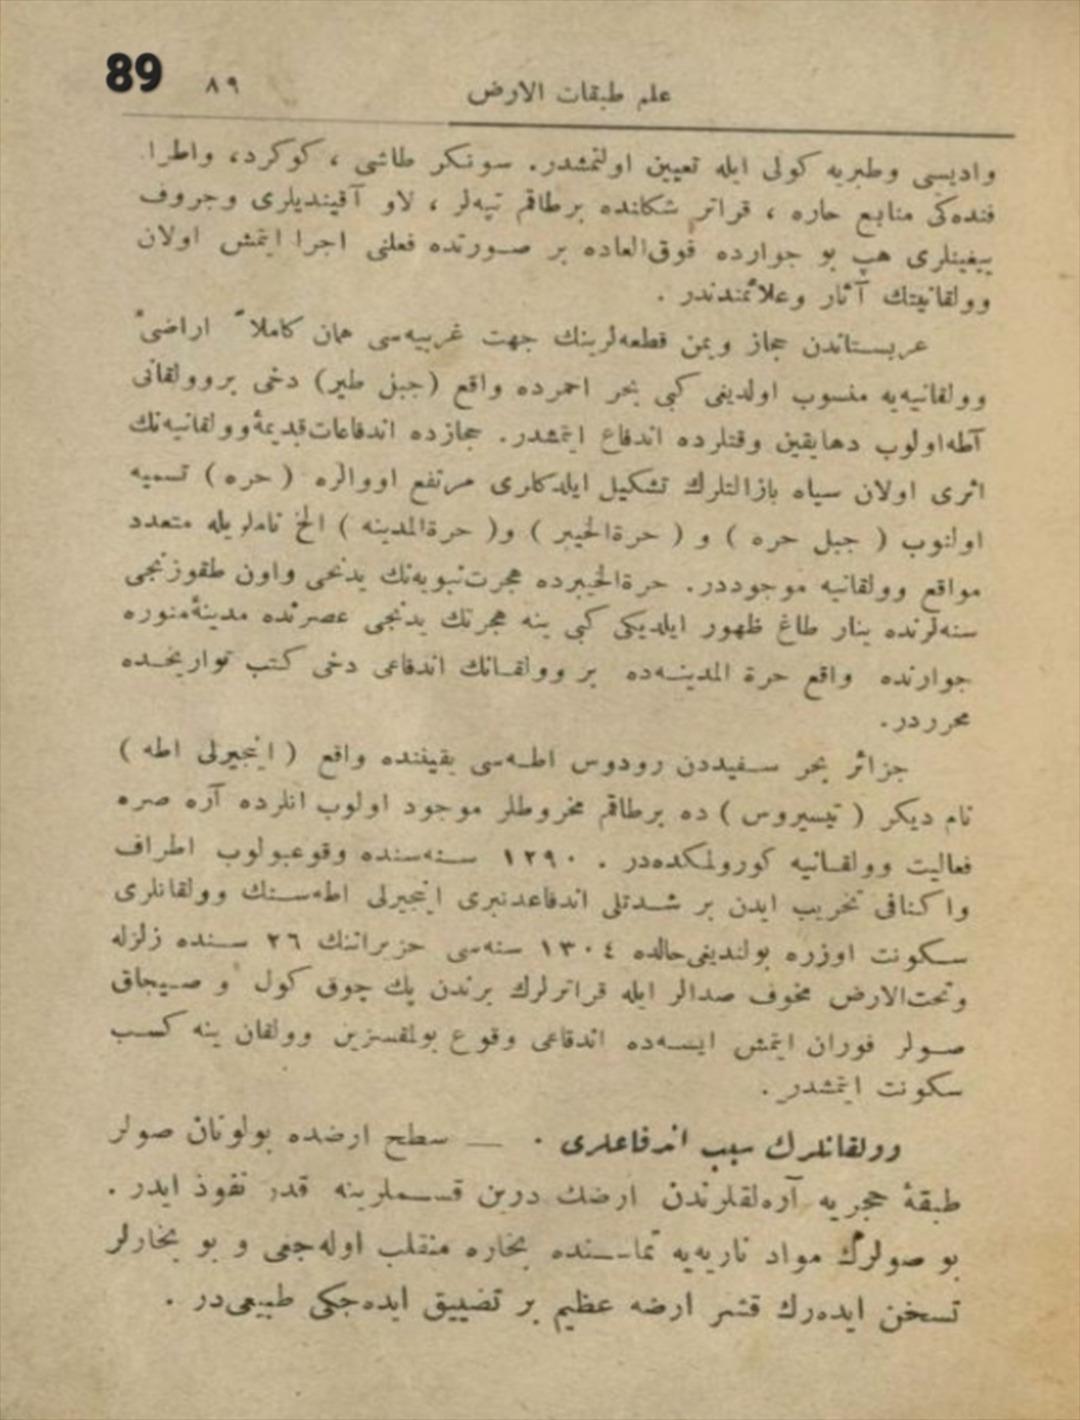 89 ٨٩ علم طبقات الارض
واديسی وطبريه كولی ايله تعيين اولنمشدر. سونكر طاشی ، كوكرد، واطرا
فنده‌كی منابع حاره ، قراتر شكلنده برطاقم تپه‌لر ، لاو آقينديلری وجروف
ييغينلری هپ بو جوارده فوق‌العاده بر صورتده فعلنی اجرا ايتمش اولان
وولقانيتك آثار وعلائمندندر .
عربستاندن حجاز ويمن قطعه‌لرينك جهت غربيه‌سی همان كاملاً اراضئ
وولقانيه‌يه منسوب اولديغی كبی بحر احمرده واقع (جبل طير) دخی بروولقانی
آطه‌اولوب دهايقين وقتلرده اندفاع ايتمشدر. حجازده اندفاعات‌قديمۀوولقانيه‌نك
اثری اولان سياه بازالتلرك تشكيل ايلدكلری مرتفع اووالره ( حره ) تسميه
اولنوب ( جبل حره ) و ( حرة‌الخيبر ) و( حرة‌المدينه ) الخ ناملريله متعدد
مواقع وولقانيه موجوددر. حرة‌الخيبرده هجرت‌نبويه‌نك يدنجی واون طقوزنجی
سنه‌لرنده ينار طاغ ظهور ايلديكی كبی ينه هجرتك يدنجی عصرنده مدينۀمنوره
جوارنده واقع حرة المدينه‌ده بر وولقانك اندفاعی دخی كتب تواريخده
محرردر.
جزائر بحر سفيددن رودوس اطه‌سی يقيننده واقع ( اينجيرلی اطه )
نام ديكر ( نيسيروس ) ده برطاقم مخروطلر موجود اولوب انلرده آره صره
فعاليت وولقانيه كورولمكده‌در . ١٢٩٠ سنه‌سنده وقوعبولوب اطراف
واكنافی تخريب ايدن بر شدتلی اندفاعدنبری اينجيرلی اطه‌سنك وولقانلری
سكونت اوزره بولنديغی‌حالده ١٣٠٤ سنه‌سی حزيراننك ٢٦ سنده زلزله
وتحت‌الارض مخوف صدالر ايله قراترلرك برندن پك چوق كول و صيجاق
صولر فوران ايتمش ايسه‌ده اندفاعی وقوع بولمقسزين وولقان ينه كسب
سكونت ايتمشدر .
وولقانلرك سبب اندفاعلری . — سطح ارضده بولونان صولر
طبقۀ حجريه آره‌لقلرندن ارضك درين قسملرينه قدر نفوذ ايدر .
بو صولرك مواد ناريه‌يه تماسنده بخاره منقلب اوله‌جغی و بو بخارلر
تسخن ايده‌رك قشر ارضه عظيم بر تضييق ايده‌جكی طبيعی‌در .